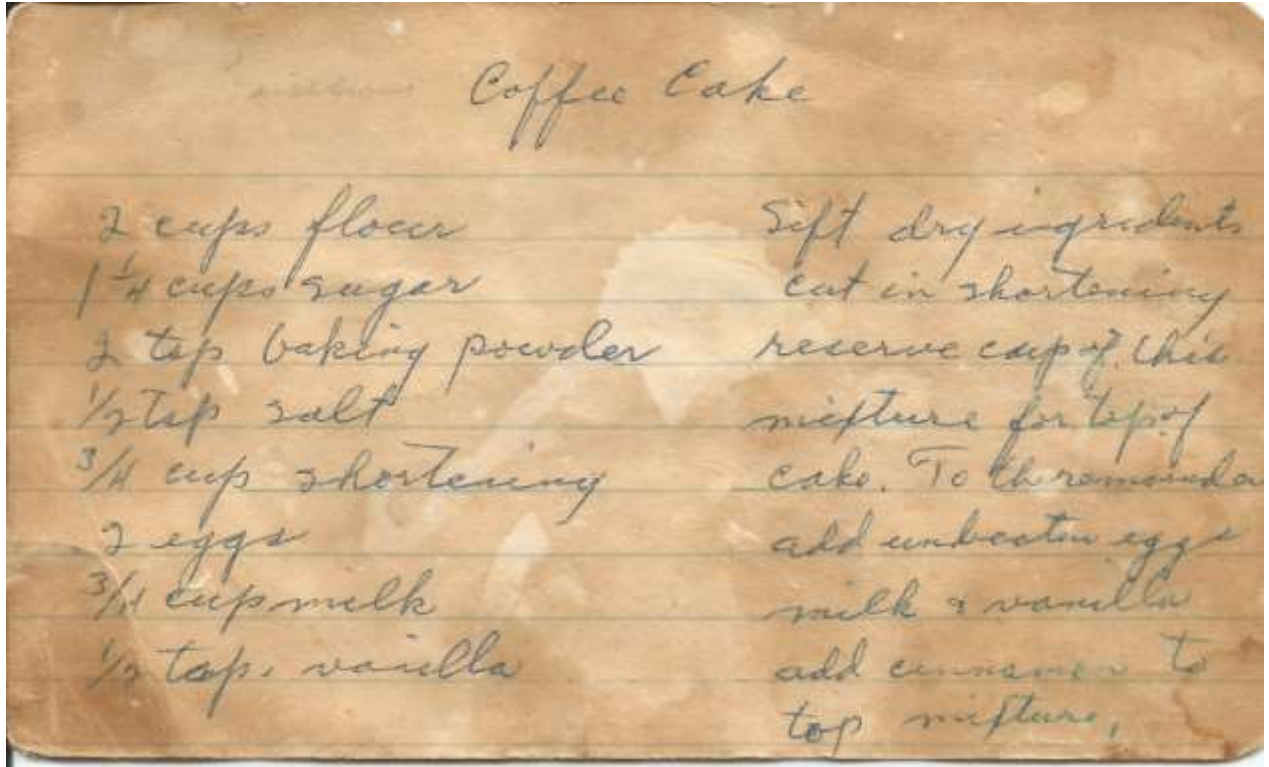 Coffee Cake
2 cups flour
1 1/4 cups sugar
2 tsp baking powder
1/2 tsp salt
3/4 cup shortening
2 eggs
3/4 cup milk
1/2 tsp. vanilla
Sift dry igredients
cut in shortening
reserve cup of this
mixture for top of
cake. To th remainder
add unbeaten eggs
milk & vanilla
add cinnamon to
top mixture.